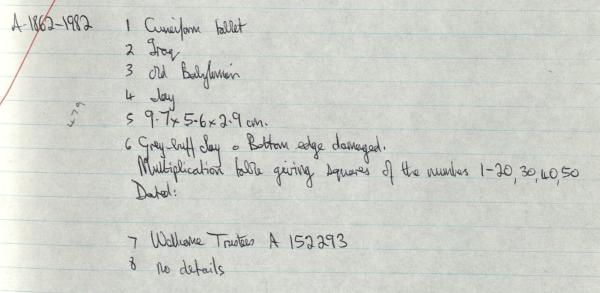 A-1862-1982 1 Cuneiform tablet
2 Iraq
3 Old Babylonian
4 clay
479
5 9.7 x 5.6 x 2.9 cm.
6 Grey-buff clay. Bottom edge damaged.
Multiplication table giving squares of the numbers 1-20, 30, 40, 50
Dated:
7 Wellcome Trustees A 152293
8 no details